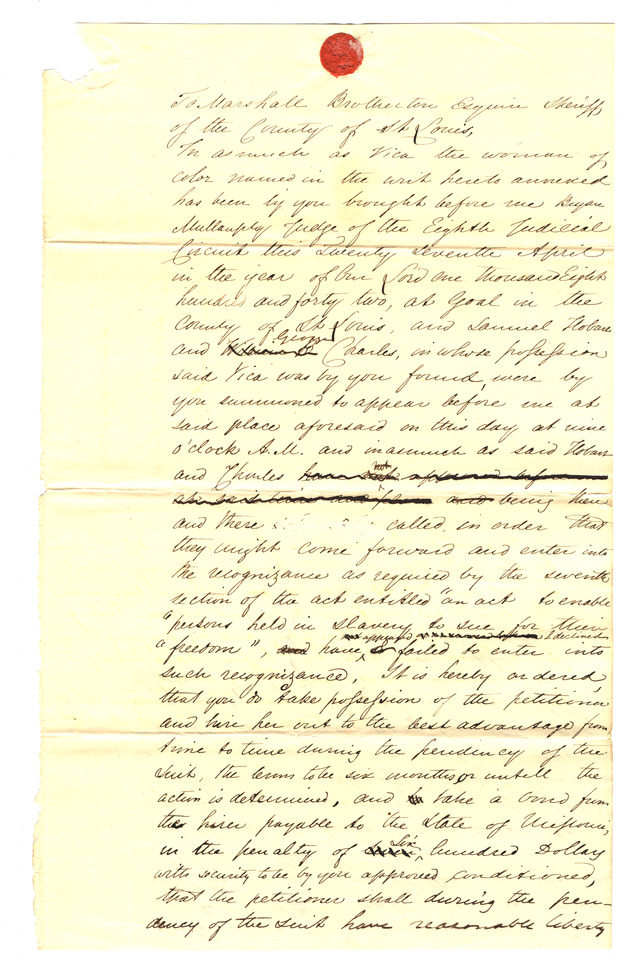 To Marshall Brotherton Esquire Sheriff
of the County of St Louis,
In asmuch as Vica the woman of
color named in the writ hereto annexed
has been by you brought before me Bryan
Mullanphy Judge of the Eighth Judicial
Circuit this Twenty Seventh April
in the year of Our Lord One thousand Eight
hundred and forty two, at Goal in the
County of St Louis, and Samuel Hobart
and George Charles, in whose possession
said Vica was by you found, were by
you summoned to appear before me at
said place aforesaid on this day at nine
o'clock A.M. and inasmuch as said Hobart
and Charles have not appeared before
and being there
and there called, in order that
they might come forward and enter into
the recognizance as required by the seventh
section of the act entitled "an act to enable
"persons held in slavery to sue for their
"freedom", and have appeared & declined
& failed to enter into
such recognizance. It is hereby ordered,
that you do take possession of the petitioner
and hire her out to the best advantage from
time to time during the pendency of the
suit, the terms to be six months or untill the
action is determined, and to take a bond from
the hirer payable to the State of Missouri,
in the penalty of Six hundred Dollars
with security to be by you approved conditioned,
that the petitioner shall during the pen-
dency of the suit have reasonable liberty